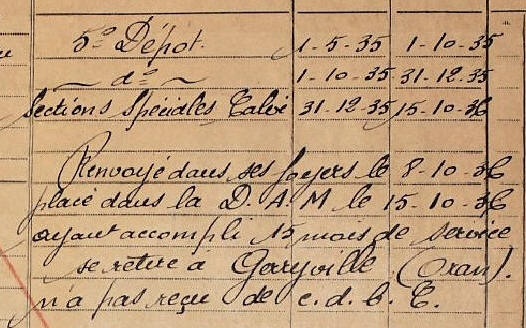 5e Dépot. 1-5-35 1-10-35
~ do ~ 1-10-35 31-12-35
Sections Spéciales Calvi 31-12-35 15-10-36
Renvoyé dans ses foyers le 8-10-36
placé dans la D. A M le 15-10-36
ayant accompli 15 mois de service
se retire a Géryville (Oran).
n'a pas reçu de c. d. b. C.